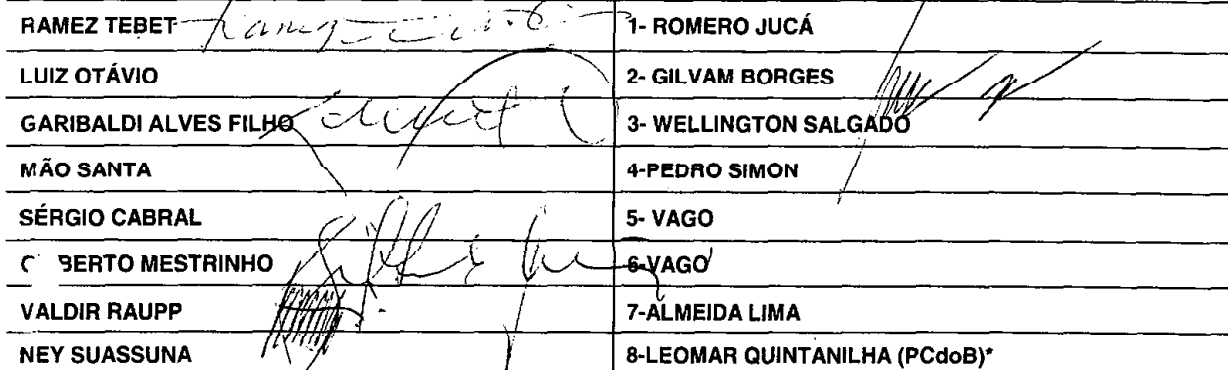 RAMEZ TEBET 1- ROMERO JUCÁ
LUIZ OTÁVIO 2- GILVAM BORGES
GARIBALDI ALVES FILHO 3- WELLINGTON SALGADO
MÃO SANTA 4-PEDRO SIMON
SÉRGIO CABRAL 5- VAGO
BERTO MESTRINHO 6-VAGO
VALDIR RAUPP 7-ALMEIDA LIMA
NEY SUASSUNA 8-LEOMAR QUINTANILHA (PCdoB)*